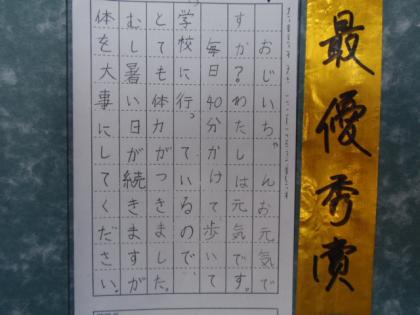 最優秀賞
おじいちゃんお元気で
すか？わたしは元気です。
毎日40分かけて歩いて
学校に行っているので、
とても体力がつきました。
むし暑い日が続きますが
体を大事にしてください。